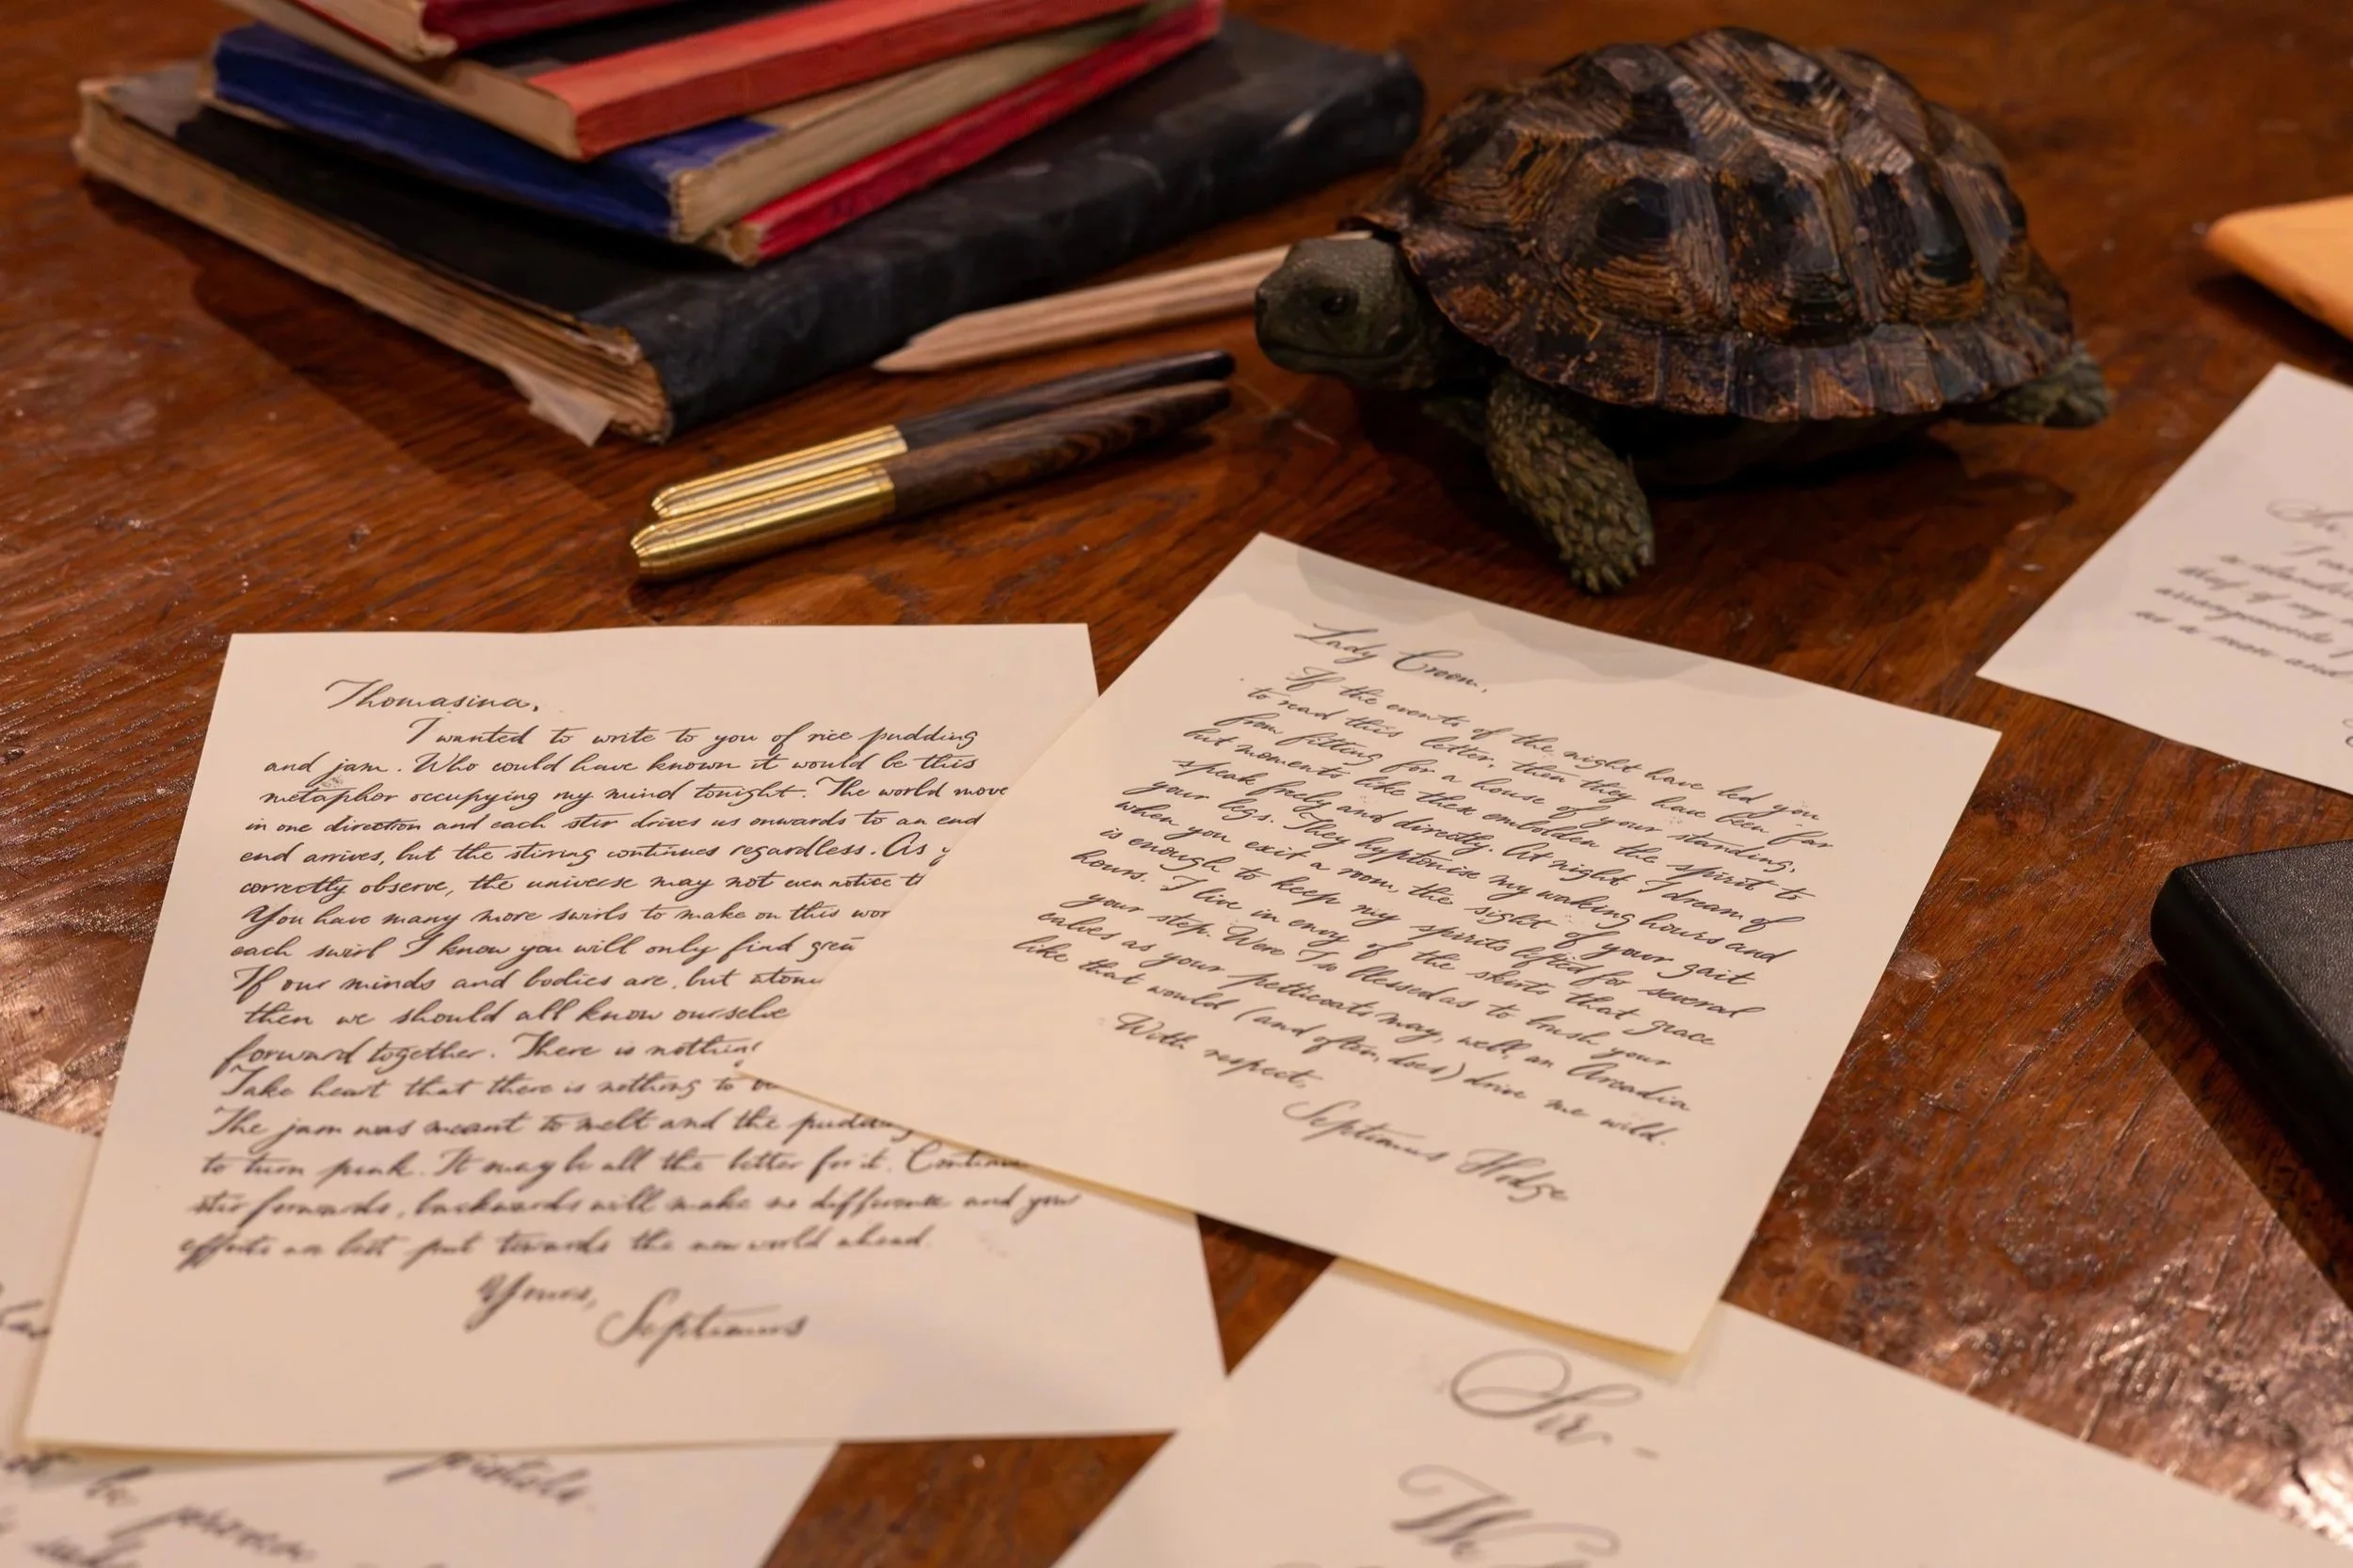 Thomasina,
I wanted to write to you of rice pudding
and jam. Who could have known it would be this
metaphor occupying my mind tonight. The world move
in one direction and each stir drives us onwards to an end
end arrives, but the stirring continues regardless. As y
correctly observe, the universe may not even notice t
You have many more swirls to make on this wor
each swirl I know you will only find grea
If our minds and bodies are, but atom
then we should all know ourselve
forward together. There is nothing
Take heart that there is nothing to
The jam was meant to melt and the pudding
to turn pink. It may be all the better for it. Continue
stir forwards, backwards will make no difference and your
efforts are best put towards the new world ahead.
Yours,
Septimus
Lady Croom,
If the events of the night have led you
to read this letter, then they have been far
from fitting for a house of your standing,
but moments like these embolden the spirit to
speak freely and directly. At night I dream of
your legs. They hyptonise my waking hours and
when you exit a room, the sight of your gait
is enough to keep my spirits lifted for several
hours. I live in envy of the skirts that grace
your step. Were I so blessed as to brush your
calves as your petticoats may, well, an Arcadia
like that would (and often does) drive me wild.
With respect,
Septimus Hodge
Sir.
I
a
of my
arrangements
as a man and
Sir -
W
pistols.
be